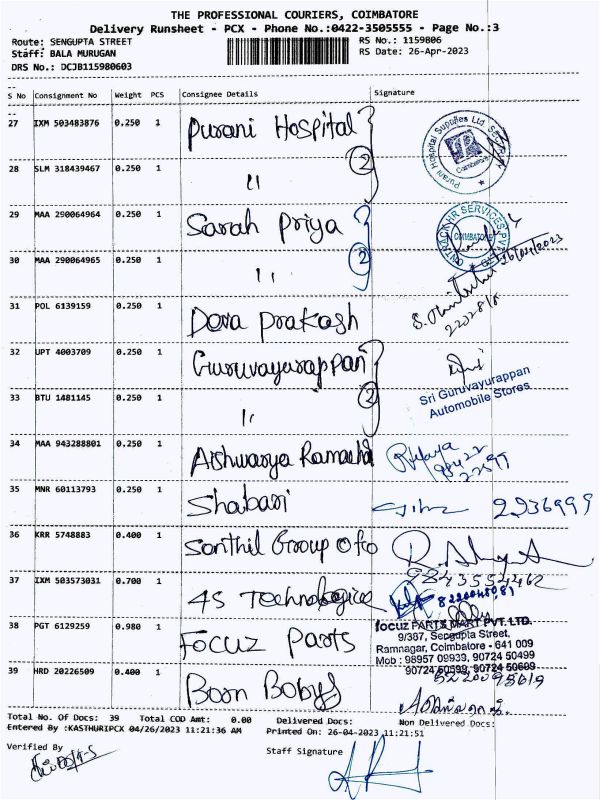 THE PROFESSIONAL COURIERS, COIMBATORE
Delivery Runsheet - PCX - Phone No.:0422-3505555 - Page No.:3
Route: SENGUPTA STREET RS No.: 1159806
Staff: BALA MURUGAN RS Date: 26-Apr-2023
DRS No.: DCJB115980603
S No Consignment No Weight PCS Consignee Details Signature
27 IXM 503483876 0.250 1 Purani Hospital
Purani Hospital Supplies Ltd
Coimbatore
2
28 SLM 318439467 0.250 1 "
29 MAA 290064964 0.250 1 Sarah Priya
HR SERVICES PVT
COIMBATORE
2
26/04/2023
30 MAA 290064965 0.250 1 "
31 POL 6139159 0.250 1 Deva Prakash
32 UPT 4003709 0.250 1 Guruvayurappan
2
Sri Guruvayurappan
Automobile Stores
33 BTU 1481145 0.250 1 "
34 MAA 943288801 0.250 1 Aishwarya
35 MNR 60113793 0.250 1 Shabari 2236999
36 KRR 5748883 0.400 1 Senthil Group of co
37 IXM 503573031 0.700 1 4S Technologies
38 PGT 6129259 0.980 1 Focuz Parts
focuz PARTS MART PVT. LTD.
9/387, Sengupta Street,
Ramnagar, Coimbatore - 641 009
Mob : 98957 09939, 90724 50499
39 HRD 20226509 0.400 1 Born Babys
Total No. Of Docs: 39 Total COD Amt: 0.00 Delivered Docs: Non Delivered Docs:
Entered By :KASTHURIPCX 04/26/2023 11:21:36 AM Printed On: 26-04-2023 11:21:51
Verified By
Staff Signature